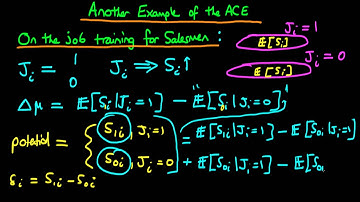 Another Example of the ACE
On the job training for Salesmen :
J_i = 1
E[S_i]
J_i = 0
E[S_i]
J_i = 1
0
J_i ⟹ S_i ↑
Δμ = E[S_1i | J_i = 1] - E[S_0i | J_i = 0]
potential = { S_1i , J_i = 1
S_0i , J_i = 0
= E[S_1i | J_i = 1] - E[S_0i | J_i = 1]
+ E[S_0i | J_i = 1] - E[S_0i
δ_i = S_1i - S_0i